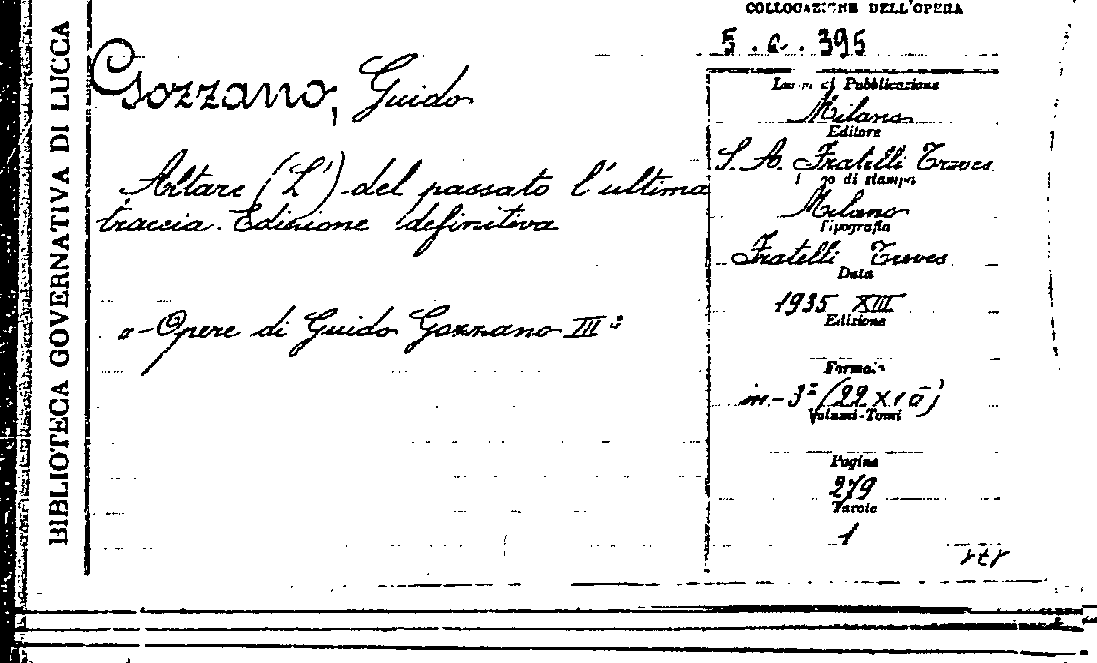 BIBLIOTECA GOVERNATIVA DI LUCCA
COLLOCAZIONE DELL'OPERA
5 . c . 395
Gozzano, Guido
Altare (L') del passato l'ultima
traccia. Edizione definitiva
"-Opere di Guido Gozzano III"
Luogo di Pubblicazione
Milano
Editore
S. A. Fratelli Treves
Luogo di stampa
Milano
Tipografia
Fratelli Treves
Data
1935 XIII
Edizione
Formato
Volumi-Tomi
Pagine
279
Tavole
1